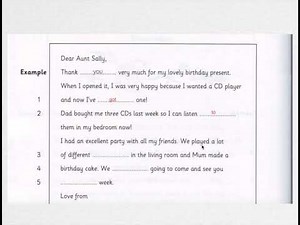 Dear Aunt Sally,
Example Thank ......you...... very much for my lovely birthday present.
When I opened it, I was very happy because I wanted a CD player
1 and now I've ......got...... one!
2 Dad bought me three CDs last week so I can listen ......to......
them in my bedroom now!
I had an excellent party with all my friends. We played a lot
3 of different .................. in the living room and Mum made a
4 birthday cake. We .................. going to come and see you
5 .................. week.
Love from